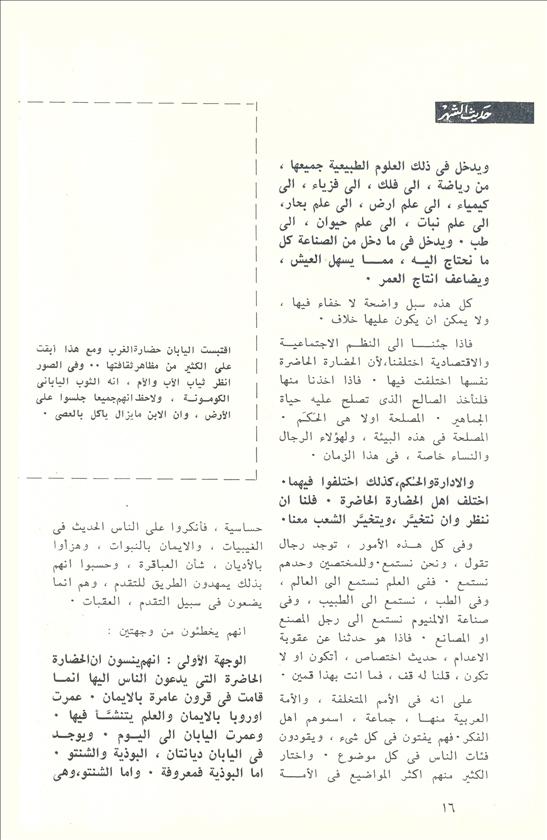 حديث الشهر
ويدخل فى ذلك العلوم الطبيعية جميعها ،
من رياضة ، الى فلك ، الى فزياء ، الى
كيمياء ، الى علم ارض ، الى علم بحار،
الى علم نبات ، الى علم حيوان ، الى
طب ٠ ويدخل فى ما دخل من الصناعة كل
ما نحتاج اليـه ، ممـا يسهل العيش ،
ويضاعف انتاج العمر ٠
كل هذه سبل واضحة لا خفاء فيها ،
ولا يمكن ان يكون عليها خلاف ٠
فاذا جئنـا الى النظـم الاجتماعيـة
والاقتصادية اختلفنا،لأن الحضارة الحاضرة
نفسها اختلفت فيها ٠ فاذا اخذنا منها
فلنأخذ الصالح الذى تصلح عليه حياة
الجماهير ٠ المصلحة اولا هى الحَكَم ٠
المصلحة فى هذه البيئة ، ولهؤلاء الرجال
والنساء خاصة ، فى هذا الزمان ٠
والادارة والحكم،كذلك اختلفوا فيهما٠
اختلف اهل الحضارة الحاضرة ٠ فلنا ان
ننظر وان نتخيَّر ،ويتخيَّر الشعب معنا٠
وفى كل هـذه الأمور ، توجد رجال
تقول ، ونحن نستمع٠وللمختصين وحدهم
نستمع ٠ ففى العلم نستمع الى العالم ،
وفى الطب ، نستمع الى الطبيب ، وفى
صناعة الالمنيوم نستمع الى رجل المصنع
او المصانع ٠ فاذا هو حدثنا عن عقوبة
الاعدام ، حديث اختصاص ، أتكون او لا
تكون ، قلنا له قف ، فما انت بهذا قمين ٠
على انه فى الأمم المتخلفة ، والأمة
العربية منهـا ، جماعة ، اسموهم اهل
الفكر٠فهم يفتون فى كل شىء ، ويقودون
فئات الناس فى كل موضوع ٠ واختار
الكثير منهم اكثر المواضيع فى الأمـة
اقتبست اليابان حضارة الغرب ومع هذا أبقت
على الكثير من مظاهر ثقافتها ٠٠ وفى الصور
انظر ثياب الأب والأم ، انه الثوب اليابانى
الكومـونـة ، ولاحظ انهم جميعا جلسوا على
الأرض ، وان الابن مايزال يأكل بالعصى ٠
حساسية ، فأنكروا على الناس الحديث فى
الغيبيات ، والايمان بالنبوات ، وهزأوا
بالأديان ، شأن العباقرة ، وحسبوا انهم
بذلك يمهدون الطريق للتقدم ، وهم انما
يضعون فى سبيل التقدم ، العقبات ٠
انهم يخطئون من وجهتين :
الوجهة الأولى : انهم ينسون ان الحضارة
الحاضرة التى يدعون الناس اليها انمـا
قامت فى قرون عامرة بالايمان ٠ عمرت
اوروبا بالايمان والعلم يتنشَّـأ فيها ٠
وعمرت اليابان الى اليـوم ٠ ويوجـد
فى اليابان ديانتان ، البوذية والشنتو ٠
اما البوذية فمعروفة ٠ واما الشنتو،وهى
١٦